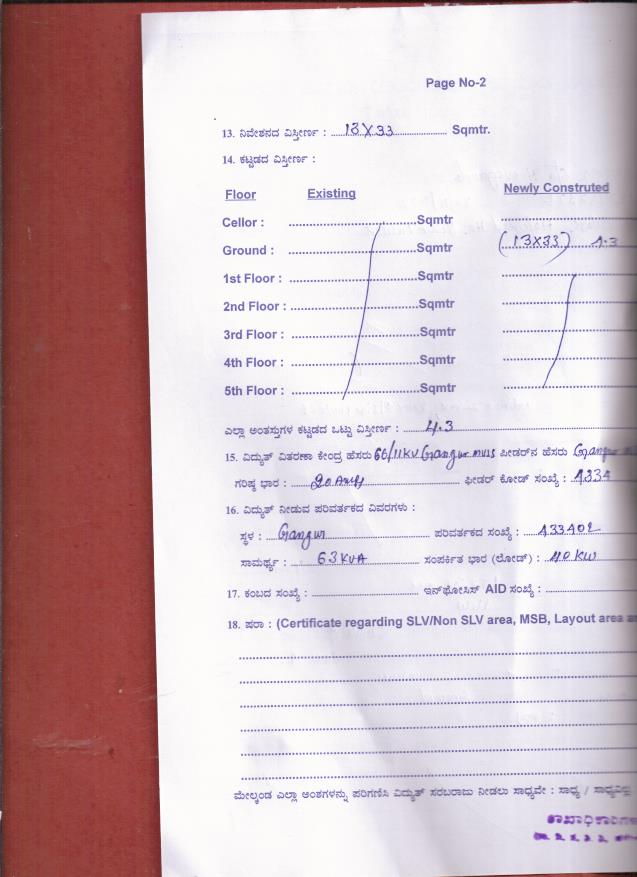 Page No-2
13. ನಿವೇಶನದ ವಿಸ್ತೀರ್ಣ : 13X33 Sqmtr.
14. ಕಟ್ಟಡದ ವಿಸ್ತೀರ್ಣ :
Floor Existing Newly Construted
Cellor : Sqmtr
Ground : Sqmtr (13X33) 4.3
1st Floor : Sqmtr
2nd Floor : Sqmtr
3rd Floor : Sqmtr
4th Floor : Sqmtr
5th Floor : Sqmtr
ಎಲ್ಲಾ ಅಂತಸ್ತುಗಳ ಕಟ್ಟಡದ ಒಟ್ಟು ವಿಸ್ತೀರ್ಣ : 4.3
15. ವಿದ್ಯುತ್ ವಿತರಣಾ ಕೇಂದ್ರ ಹೆಸರು 66/11KV Gangur muss ಫೀಡರ್‌ನ ಹೆಸರು Gangur
ಗರಿಷ್ಠ ಭಾರ : 20 Amps ಫೀಡರ್ ಕೋಡ್ ಸಂಖ್ಯೆ : 4334
16. ವಿದ್ಯುತ್ ನೀಡುವ ಪರಿವರ್ತಕದ ವಿವರಗಳು :
ಸ್ಥಳ : Gangur ಪರಿವರ್ತಕದ ಸಂಖ್ಯೆ :
ಸಾಮರ್ಥ್ಯ : 63 KVA ಸಂಪರ್ಕಿತ ಭಾರ (ಲೋಡ್) : 40 KW
17. ಕಂಬದ ಸಂಖ್ಯೆ : ಇನ್‌ಫೋಸಿಸ್ AID ಸಂಖ್ಯೆ :
18. ಷರಾ : (Certificate regarding SLV/Non SLV area, MSB, Layout area
ಮೇಲ್ಕಂಡ ಎಲ್ಲಾ ಅಂಶಗಳನ್ನು ಪರಿಗಣಿಸಿ ವಿದ್ಯುತ್ ಸರಬರಾಜು ನೀಡಲು ಸಾಧ್ಯವೇ : ಸಾಧ್ಯ / ಸಾಧ್ಯವಿಲ್ಲ